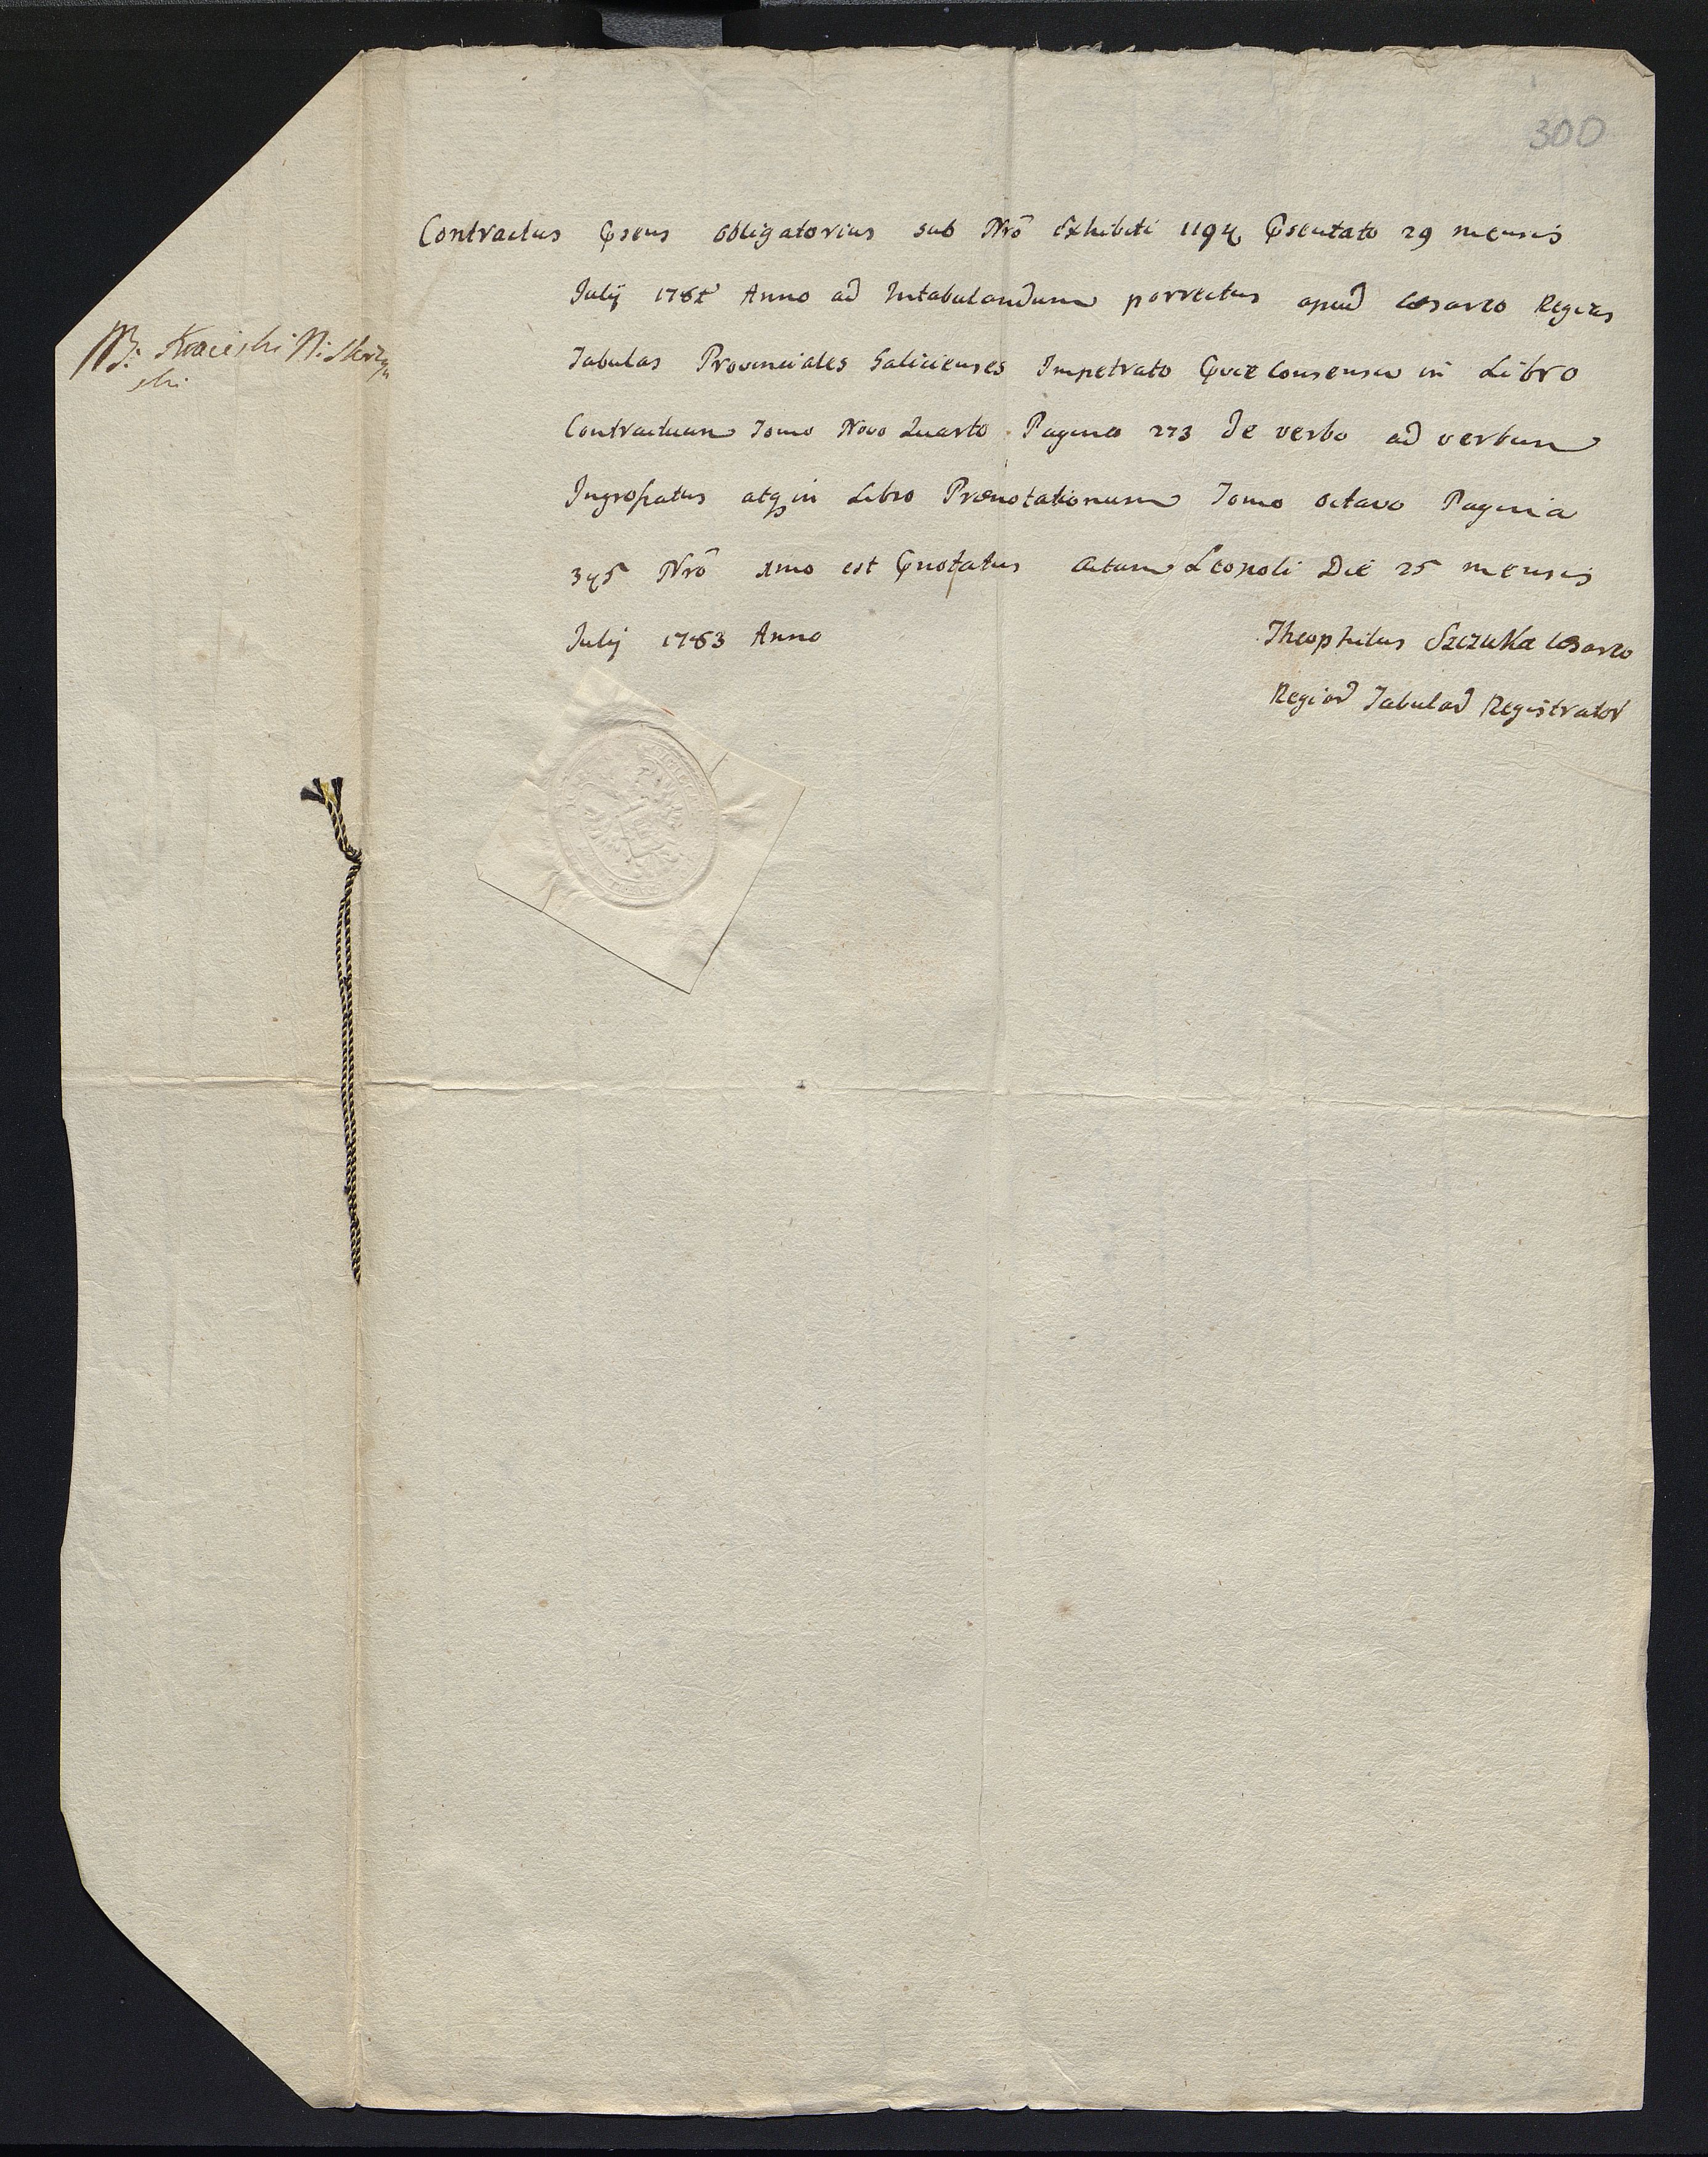 300
Contractus Pſens obligatorius sub Nrō Exhibiti 1194 Pſentato 29 mensis
Julij 1782 Anno ad Intabulandum porrectus apud Cæsareo Regias
Tabulas Provinciales Galicienses Impetrato Pvie Consensu in Libro
Contractuum Tomo Novo Quarto Pagina 273 de verbo ad verbum
Ingroſsatus atq in Libro Prænotationum Tomo octavo Pagina
345 Nrō 1mo est Pnotatus Actum Leopoli Die 25 mensis
Julij 1783 Anno
Theophilus Szczuka Cæsareo
Regiar Tabular Registrator